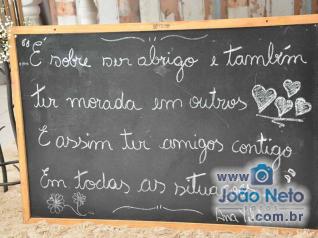 "É sobre ser abrigo e também
ter morada em outros
E assim ter amigos contigo
Em todas as
João Neto
.com.br
Ana